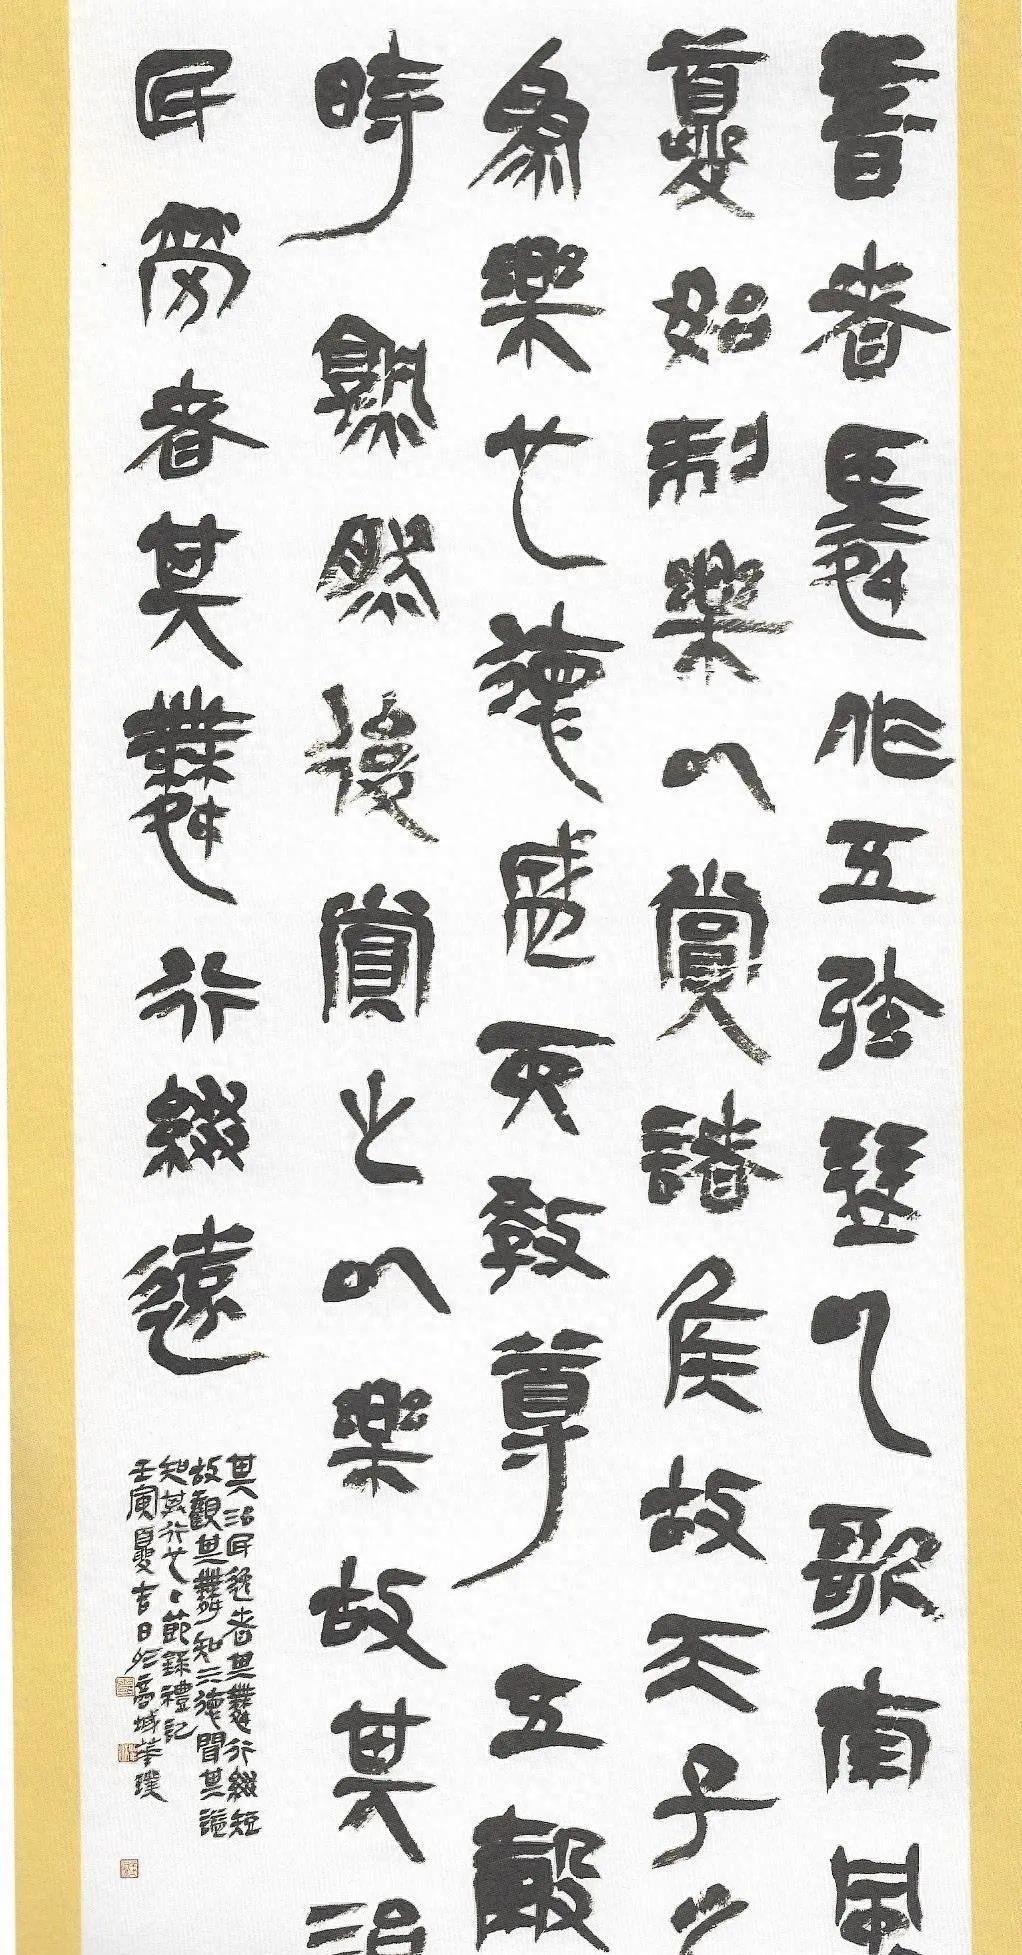 昔者舜作五弦琴以歌南風
夔始制樂以賞諸侯故天子之
為樂也德盛而教尊五穀
時熟然後賞之以樂故其治
民勞者其舞行綴遠
其治民逸者其舞行綴短
故觀其舞知亓德聞其謚
知其行也節錄禮記
壬寅夏吉日於商城華璞